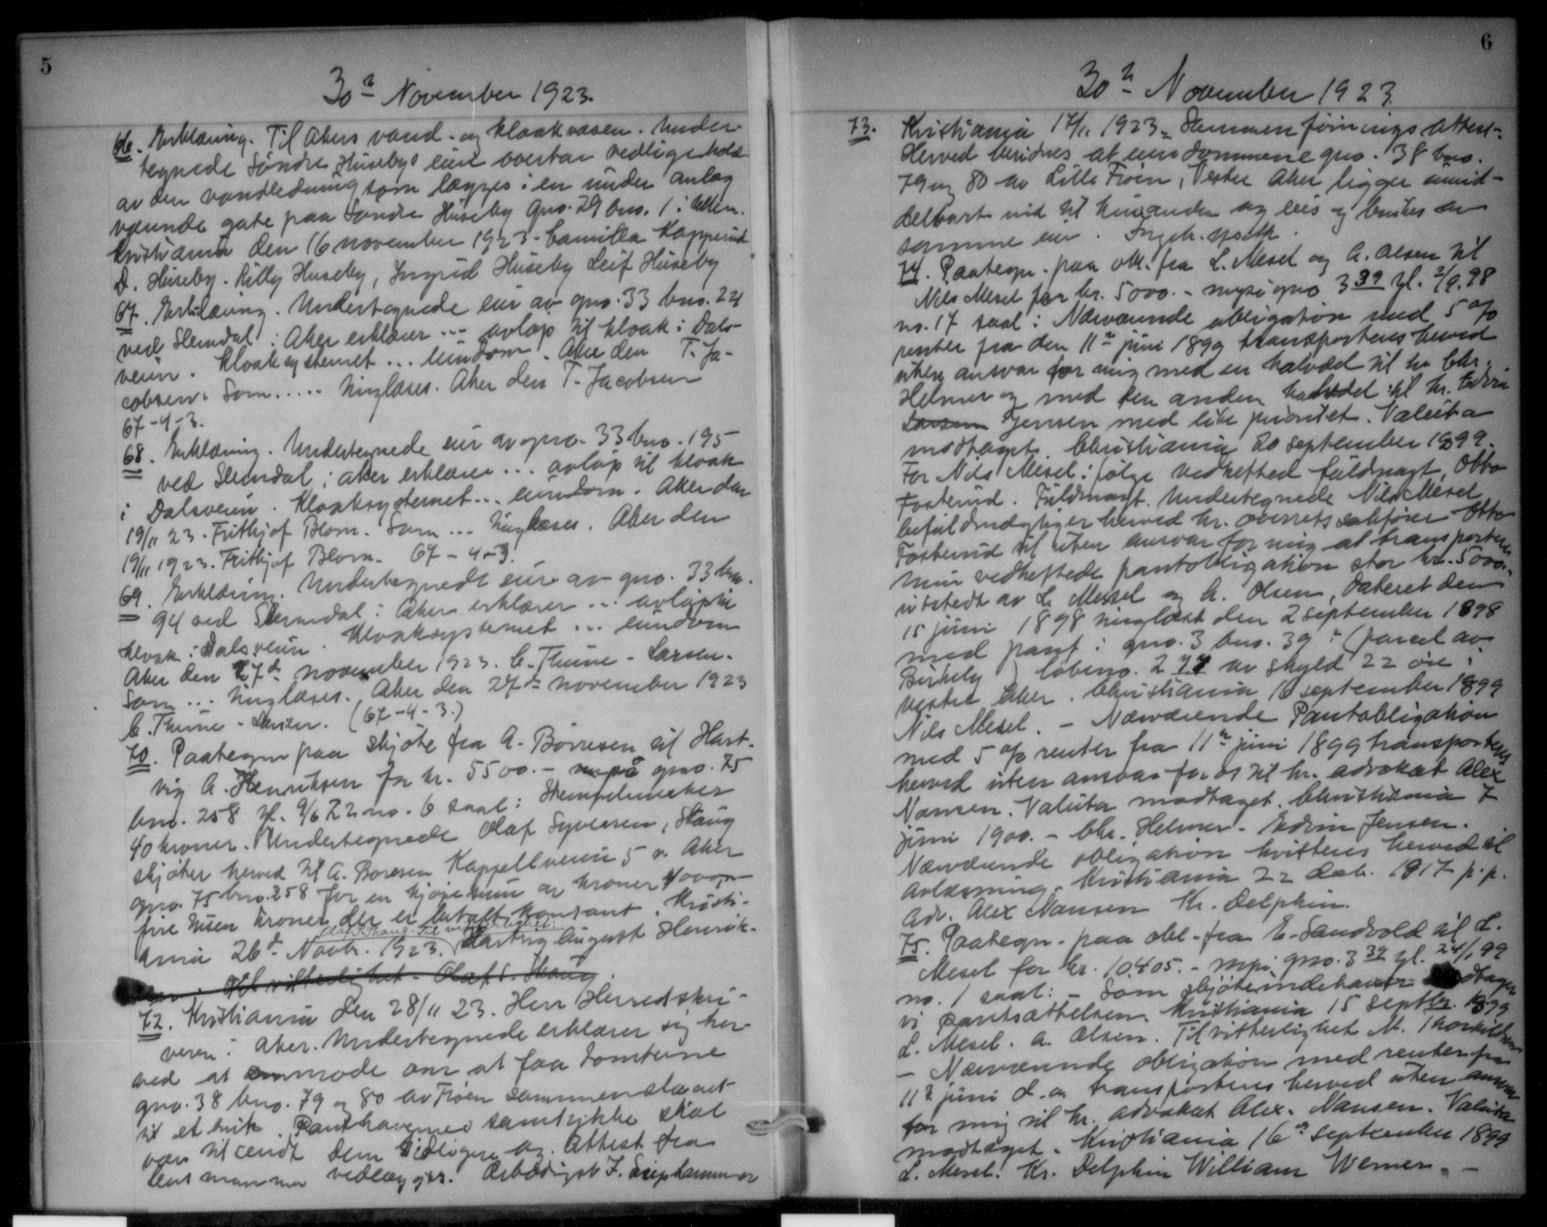 5
30te November 1923.
66. Erklæring. Til Akers vand- og kloakvæsen. Under-
tegnede Søndre Husebys eier overtar vedligehold
av den vandledning som lægges i en under anlæg
værende gate paa Søndre Huseby gno. 29 bno. 1 i Aker.
Kristiania den 16 november 1923. Camilla Kopperud
D. Huseby. Rilly Huseby, Ingrid Huseby Leif Huseby
67. Erklæring. Undertegnede eier av gno. 33 bno. 24
ved Slemdal i Aker erklærer ... avløp til kloak i Dals-
veien. Kloaksystemet ... eiendom. Aker den T. Ja-
cobsen. Som ..... tinglæses. Aker den T. Jacobsen
67-4-3.
68. Erklæring. Undertegnede eier av gno. 33 bno. 195
ved Slemdal i Aker erklærer ... avløp til kloak
i Dalsveien. Kloaksystemet ... eiendom. Aker den
19/11 23. Frithjof Blom. Som ... tinglæses. Aker den
19/11 1923. Frithjof Blom. 67-4-3.
69. Erklæring. Undertegnede eier av gno. 33 bno.
94 ved Slemdal i Aker erklærer ... avløp til
kloak i Dalsveien. Kloaksystemet ... eiendom
Aker den 27de november 1923. C. Thune-Larsen.
Som ... tinglæses. Aker den 27de november 1923
C. Thune-Larsen. (67-4-3.)
70. Paategn paa skjøte fra A. Børresen til Hart-
vig A. Henriksen for kr. 5500.- gno. 75
bno. 258 gl. 9/6 22 no. 6 saal: Stempelmerker
40 kroner. Undertegnede Olaf Syversen, Skaug
skjøter herved til A. Børresen Kappellveien 5 v. Aker
gno. 75 bno. 258 for en kjøpesum av kroner 4000,-
fire tusen kroner der er betalt kontant. Kristi-
Olaf S. Skaug. Til
ania 26de Novbr. 1923. Hartvig August Henrik-
Til vitterlighet Olaf S. Skaug.
72. Kristiania den 28/11 23. Herr Herredsskri-
veren i Aker. Undertegnede erklærer sig her-
ved at anmode om at faa tomterne
gno. 38 bno. 79 og 80 av Frøen sammenslaaet
til et bruk. Panthavernes samtykke skal
være tilsendt Dem tidligere og Attest fra
lensmannen vedlægges. Ærbødigst F.
6
30te November 1923.
73. Kristiania 17/11 1923. Sammenføinings attest.
Herved bevidnes at eiendommene gno. 38 bno.
79 og 80 av Lille Frøen, Vestre Aker ligger umid-
delbart ind til hinanden og eies og brukes av
samme eier. Ingeb.
74. Paategn. paa obl. fra L. Mesel og A. Olsen til
Nils Mesel for kr. 5000.- gno 3 39 gl. 2/9. 98
no. 17 saal: Nærværende obligation med 5 %
renter fra den 11te juni 1899 transporteres herved
uten ansvar for mig med en halvdel til hr Chr.
Helmer og med den anden halvdel til hr. Edvin
Larsen Jensen med like prioritet. Valuta
modtaget. Christiania 20 september 1899.
For Nils Mesel ifølge vedheftet fuldmagt, Otto
Fosterud. Fuldmagt. Undertegnede Nils Mesel
befuldmægtiger herved hr. overretssakfører Otto
Fosterud til uten ansvar for mig at transportere
min vedheftede pantobligation stor kr. 5000.-
utstedt av L. Mesel og A. Olsen, dateret den
15 juni 1898 tinglæst den 2 september 1898
med pant i gno. 3 bno. 39 (parcel av
Birkely) løbeno. 277 av skyld 22 øre i
vestre Aker. Christiania 16 september 1899
Nils Mesel. - Nærværende Pantobligation
med 5 % renter fra 11te juni 1899 transporteres
herved uten ansvar for os til hr. advokat Alex
Nansen. Valuta modtaget. Christiania 7
juni 1900. - Chr. Helmer. Edvin Jensen.
Nærværende obligation kvitteres herved til
avlæsning. Kristiania 22 deb. 1917 p.p.
Adv. Alex Nansen Kr. Delphin.
75. Paategn. paa obl. fra E. Sandvold til L.
Mesel for kr. 10405.- gno. 3 39 gl. 24/1 99
no. 1 saal: - Som skjøteindehaver
vi pantsættelsen. Kristiania 15 septbr. 1899
L. Mesel. A. Olsen. Til vitterlighet M. Thorkildsen
- Nærværende obligation med renter fra
11te juni d.a. transporteres herved uten ansvar
for mig til hr. advokat Alex. Nansen. Valuta
modtaget. Kristiania 16de september 1899
L. Mesel. Kr. Delphin William Werner. -